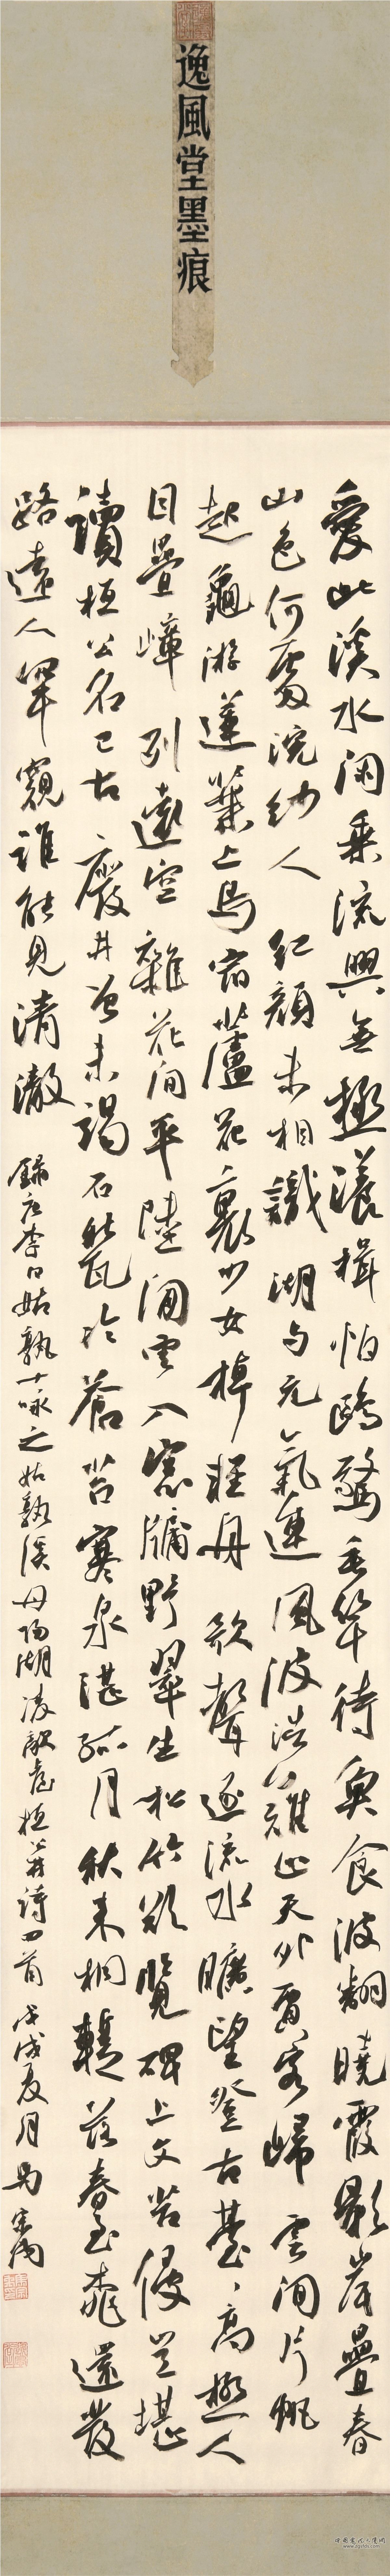 逸風堂墨痕
愛此溪水闲乘流興無極漾楫怕鷗驚垂竿待魚食波翻曉霞影岸疊春
山色何處浣紗人紅顏未相識湖與元氣連風波浩難止天外賈客歸雲間片帆
起龜游蓮葉上鳥宿蘆花裏少女棹輕舟歌聲逐流水曠望登古臺、高極人
目疊嶂列遠空雜花間平陸闲雲入窗牖野翠生松竹欲覽碑上文苔侵豈堪
讀桓公名已古廢井曾未竭石甃冷蒼苔寒泉湛孤月秋來桐暫落春至桃還發
路遠人罕窺誰能見清澈 錄唐李白姑孰十詠之姑孰溪丹陽湖凌歊臺桓公井詩四首 戊戌夏月